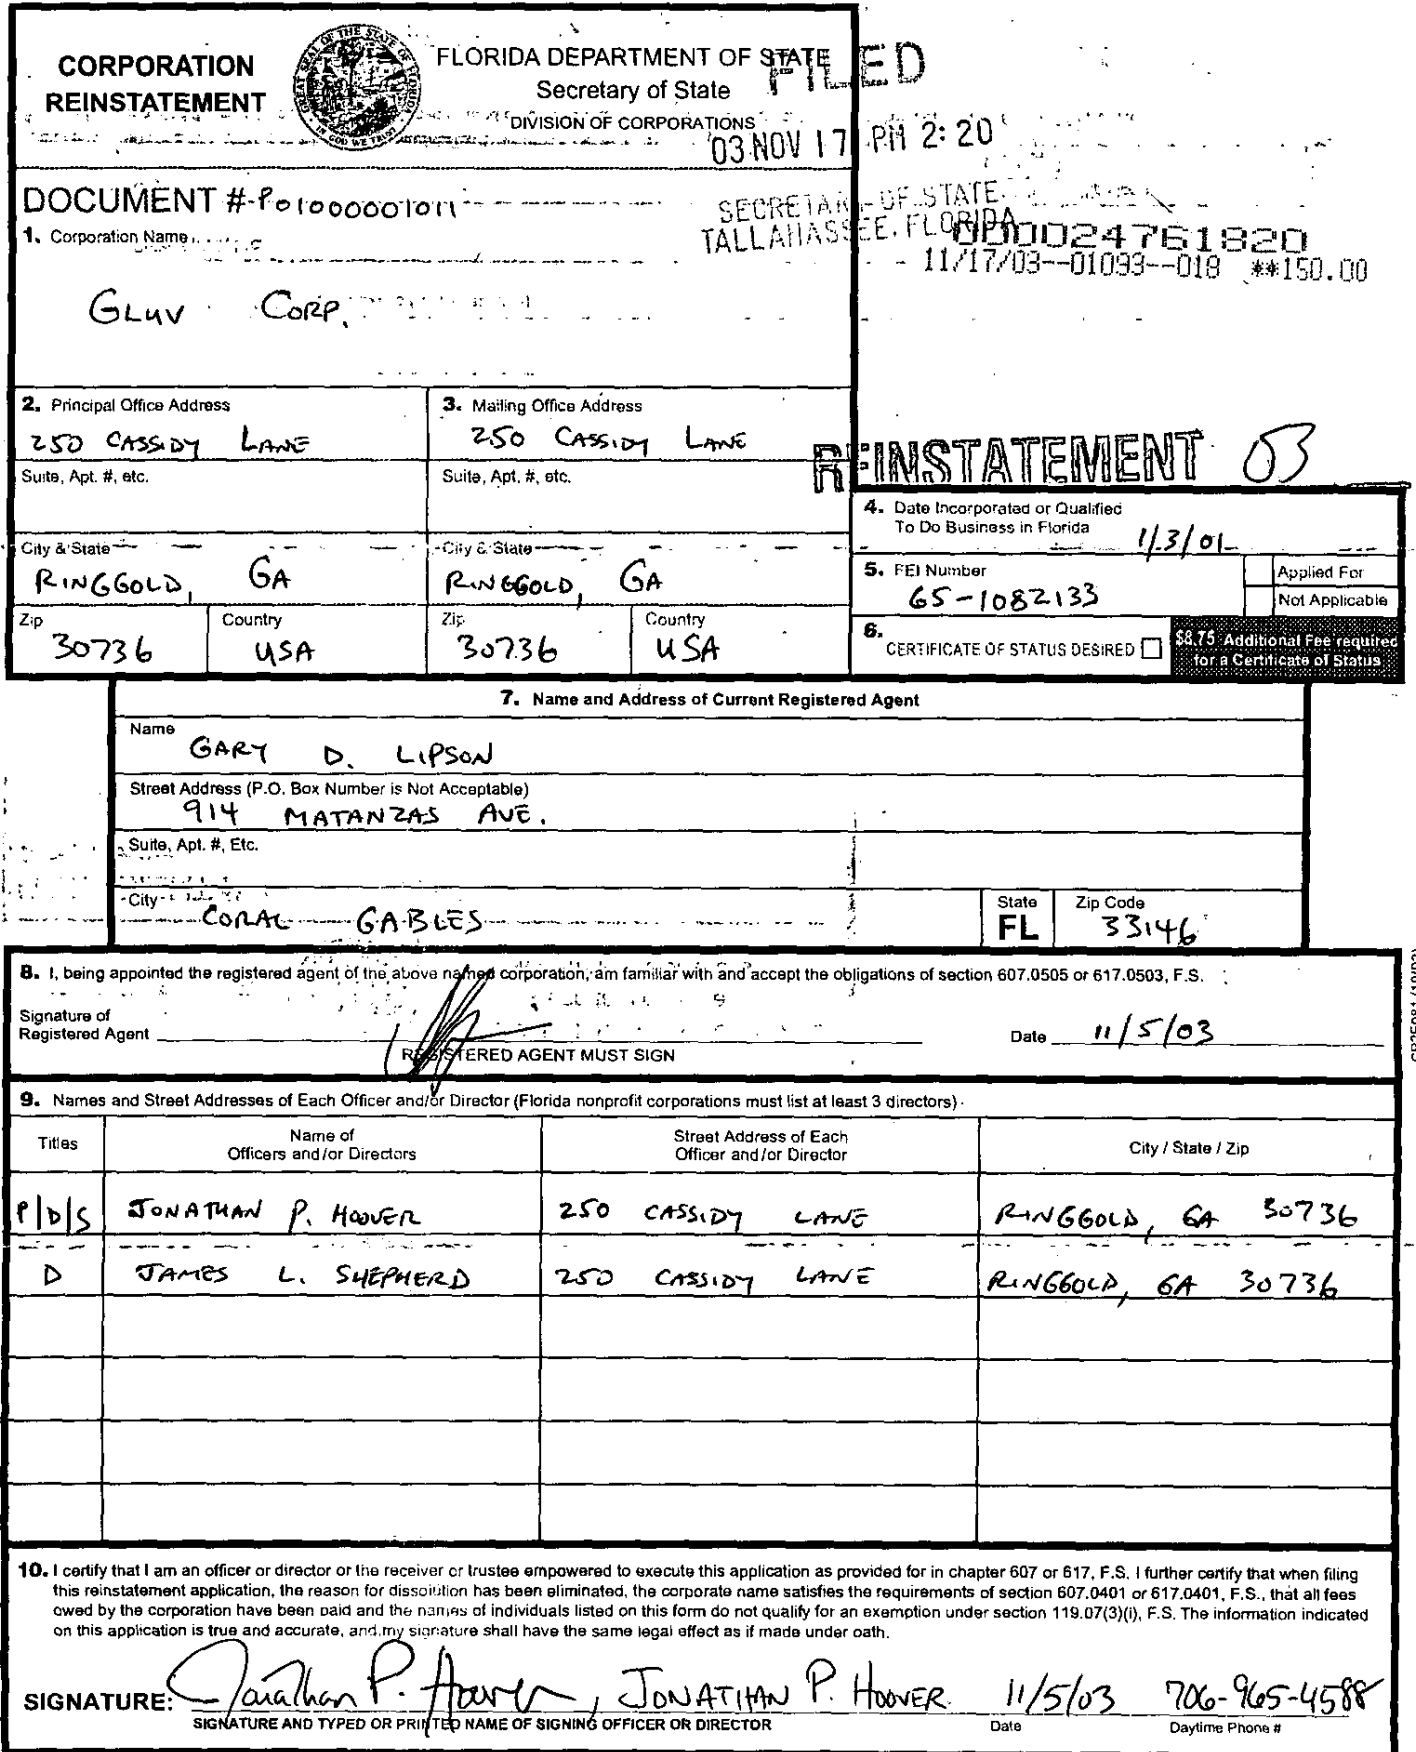 CORPORATION
REINSTATEMENT
GREAT SEAL OF THE STATE OF FLORIDA
IN GOD WE TRUST
FLORIDA DEPARTMENT OF STATE
Secretary of State
DIVISION OF CORPORATIONS
FILED
03 NOV 17 PM 2:20
SECRETARY OF STATE
TALLAHASSEE, FLORIDA
DOCUMENT # P01000001011
1. Corporation Name
GLUV CORP.
000024761820
11/17/03--01093--018 **150.00
2. Principal Office Address
250 CASSIDY LANE
3. Mailing Office Address
250 CASSIDY LANE
Suite, Apt. #, etc.
Suite, Apt. #, etc.
REINSTATEMENT 03
City & State
RINGGOLD, GA
City & State
RINGGOLD, GA
Zip
30736
Country
USA
Zip
30736
Country
USA
4. Date Incorporated or Qualified
To Do Business in Florida
1/3/01
5. FEI Number
65-1082133
Applied For
Not Applicable
6.
CERTIFICATE OF STATUS DESIRED
$8.75 Additional Fee required
for a Certificate of Status
7. Name and Address of Current Registered Agent
Name
GARY D. LIPSON
Street Address (P.O. Box Number is Not Acceptable)
914 MATANZAS AVE.
Suite, Apt. #, Etc.
City
CORAL GABLES
State
FL
Zip Code
33146
8. I, being appointed the registered agent of the above named corporation, am familiar with and accept the obligations of section 607.0505 or 617.0503, F.S.
Signature of
Registered Agent
REGISTERED AGENT MUST SIGN
Date 11/5/03
9. Names and Street Addresses of Each Officer and/or Director (Florida nonprofit corporations must list at least 3 directors)
Titles
Name of
Officers and/or Directors
Street Address of Each
Officer and/or Director
City / State / Zip
P/D/S JONATHAN P. HOOVER 250 CASSIDY LANE RINGGOLD, GA 30736
D JAMES L. SHEPHERD 250 CASSIDY LANE RINGGOLD, GA 30736
10. I certify that I am an officer or director or the receiver or trustee empowered to execute this application as provided for in chapter 607 or 617, F.S. I further certify that when filing
this reinstatement application, the reason for dissolution has been eliminated, the corporate name satisfies the requirements of section 607.0401 or 617.0401, F.S., that all fees
owed by the corporation have been paid and the names of individuals listed on this form do not qualify for an exemption under section 119.07(3)(i), F.S. The information indicated
on this application is true and accurate, and my signature shall have the same legal effect as if made under oath.
SIGNATURE: Jonathan P. Hoover, JONATHAN P. HOOVER 11/5/03 706-965-4588
SIGNATURE AND TYPED OR PRINTED NAME OF SIGNING OFFICER OR DIRECTOR
Date
Daytime Phone #